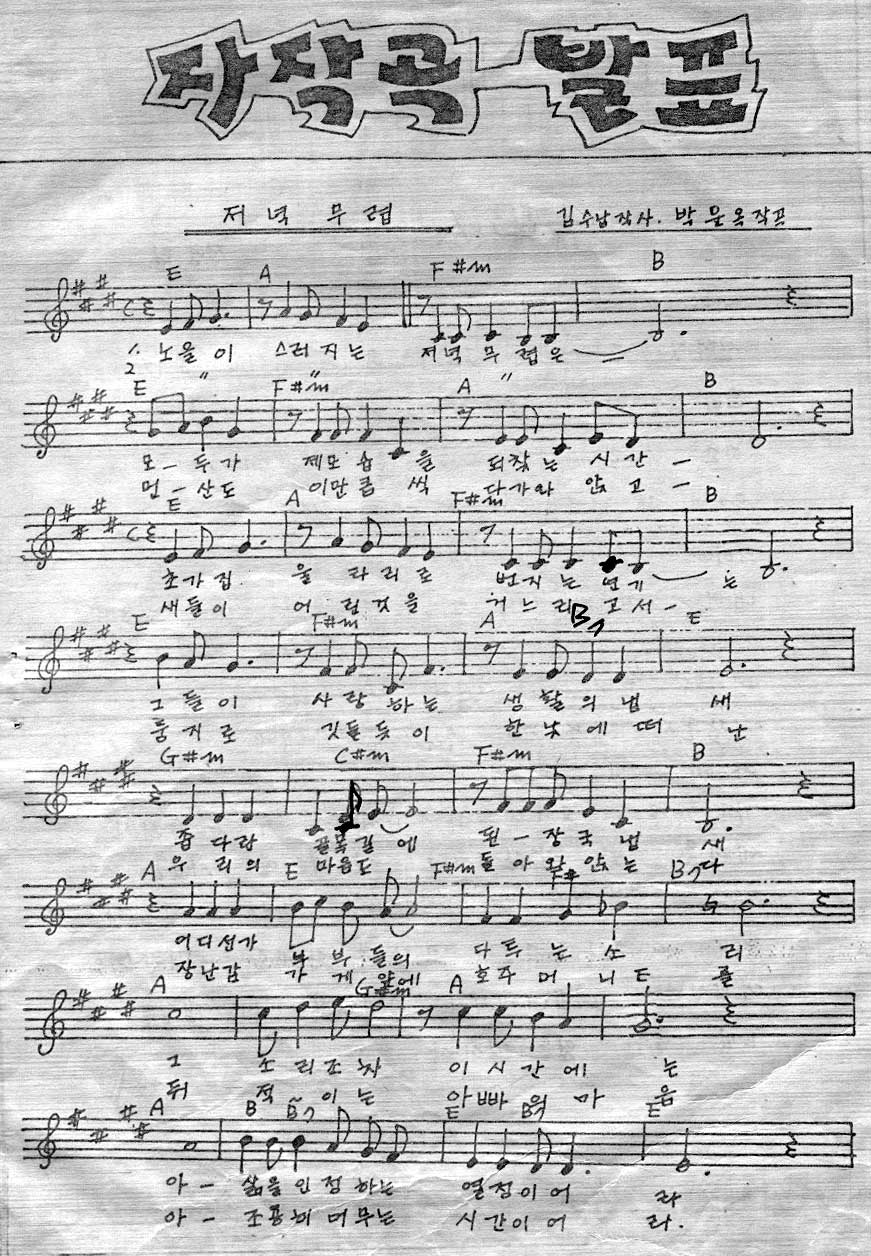 자작곡 발표
저녁 무렵
김수남작사. 박문옥작곡
E A F#m B
1. 노을이 스러지는 저녁 무렵은
2 〃 〃 〃
E F#m A B
모-두가 제모습을 되찾는 시간-
먼-산도 이만큼씩 다가와 앉고-
E A F#m B
초가집 울타리로 번지는 연기는
새들이 어린것을 거느리고서-
E F#m A B7 E
그들이 사랑하는 생활의 냄새
둥지로 깃들듯이 한낮에 떠난
G#m C#m F#m B
좁다랑 골목길에 된-장국냄새
우리의 마음도 돌아와앉는다
A E F#m F# B7
어디선가 부부들의 다투는 소리
장난감 가게앞에 호주머니를
A G#m A E
그 소리조차 이시간에는
뒤적이는 아빠의 마음
A B B7 E B7 E
아- 삶을인정하는 열정이어라
아- 조용히머무는 시간이어라.